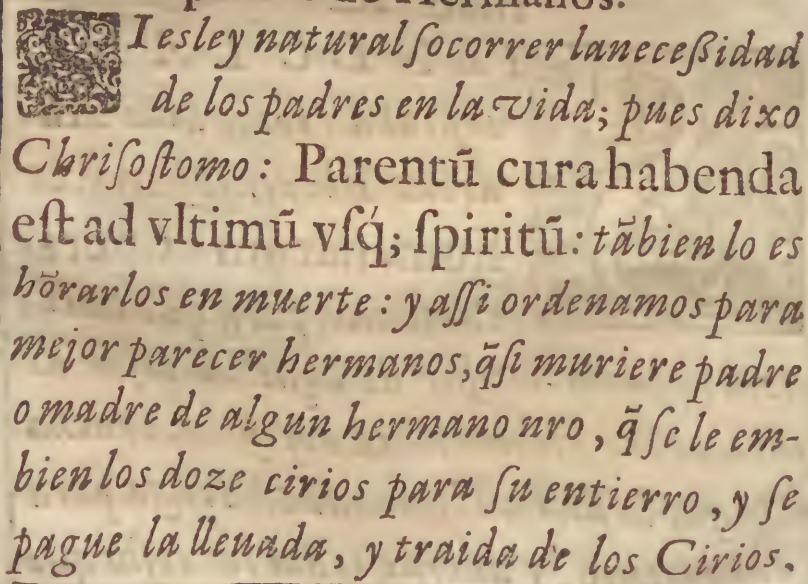 Hermanos.
SI es ley natural socorrer la neceſsidad
de los padres en la vida; pues dixo
Chriſoſtomo: Parentũ cura habenda
eſt ad vltimũ vſq́; ſpiritũ: tãbien lo es
hõrarlos en muerte: y aſſi ordenamos para
mejor parecer hermanos, q̃ ſi muriere padre
o madre de algun hermano nro, q̃ ſe le em-
bien los doze cirios para ſu entierro, y ſe
pague la lleuada, y traida de los Cirios.